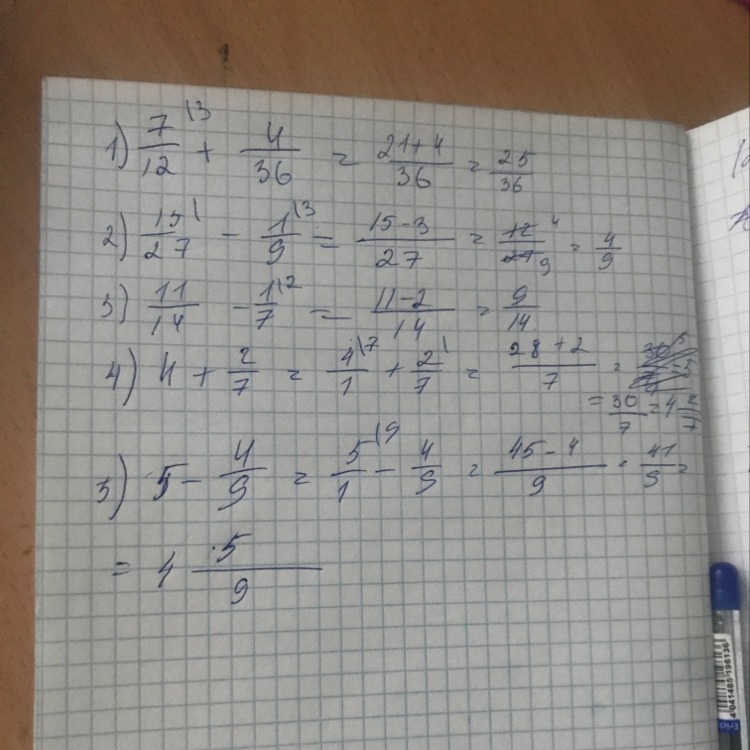 1) 7/12 \3 + 4/36 = 21+4/36 = 25/36
2) 15/27 \ - 1/9 \3 = 15-3/27 = 12/27 4 9 = 4/9
3) 11/14 - 1/7 \2 = 11-2/14 = 9/14
4) 4 + 2/7 = 4/1 \7 + 2/7 \ = 28+2/7 =
= 30/7 = 4 2/7
5) 5 - 4/9 = 5/1 \9 - 4/9 = 45-4/9 = 41/9 =
= 4 5/9
4 041485 196136